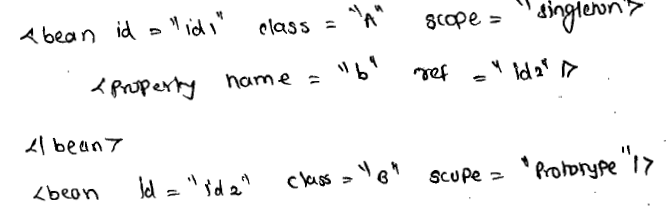 <bean id = "id1" class = "A" scope = "singleton>
<property name = "b" ref = "id2" />
</bean>
<bean id = "id2" class = "B" scope = "Prototype"/>